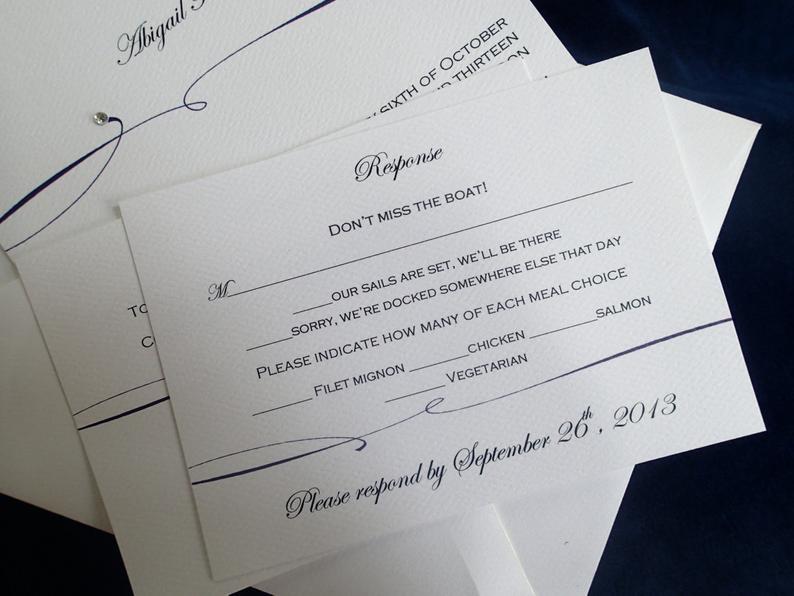 Abigail
SIXTH OF OCTOBER
THIRTEEN
ON
TO
C
Response
DON'T MISS THE BOAT!
M
OUR SAILS ARE SET, WE'LL BE THERE
SORRY, WE'RE DOCKED SOMEWHERE ELSE THAT DAY
PLEASE INDICATE HOW MANY OF EACH MEAL CHOICE
FILET MIGNON CHICKEN SALMON
VEGETARIAN
Please respond by September 26th, 2013